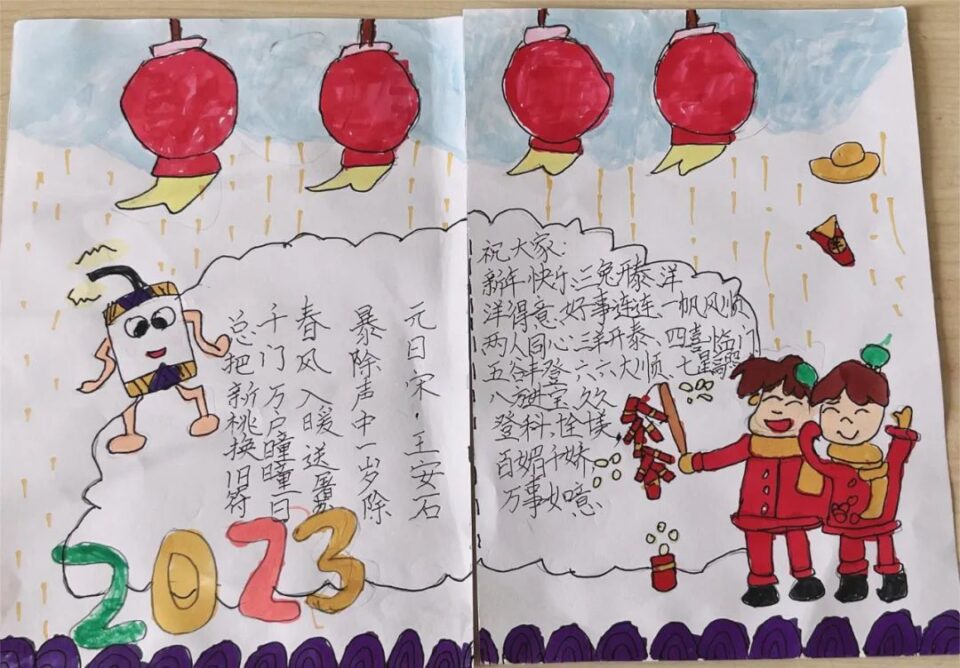 元日宋·王安石
暴除声中一岁除
春风入暖送
千门万户瞳瞳日
总把新桃换旧符
2023
祝大家:
新年快乐,三兔开泰、洋
洋得意、好事连连、一帆风顺
两人同心、三羊开泰、四喜临门
五谷丰登、六六大顺、七星
八方进宝、久久
登科、
百媚千娇、
万事如意